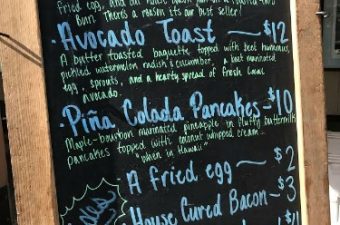 fried egg, and our house bacon jam on a toasted
Bun! There's a reason it's our best seller!
Avocado Toast - $12
A butter toasted baguette topped with beet hummus,
pickled watermelon radish & cucumber, a beet marinated
egg, sprouts, and a hearty spread of fresh
avocado.
Piña Colada Pancakes - $10
Maple-bourbon marinated pineapple in fluffy buttermilk
pancakes topped with coconut whipped cream.
"when in Hawaii"
A fried egg - $2
House Cured Bacon - $3
$4
Sides